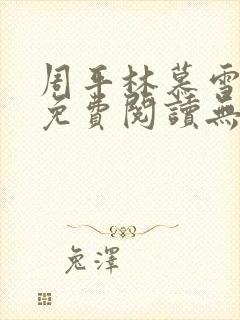 周平林慕雪
免費閱讀無
兔澤